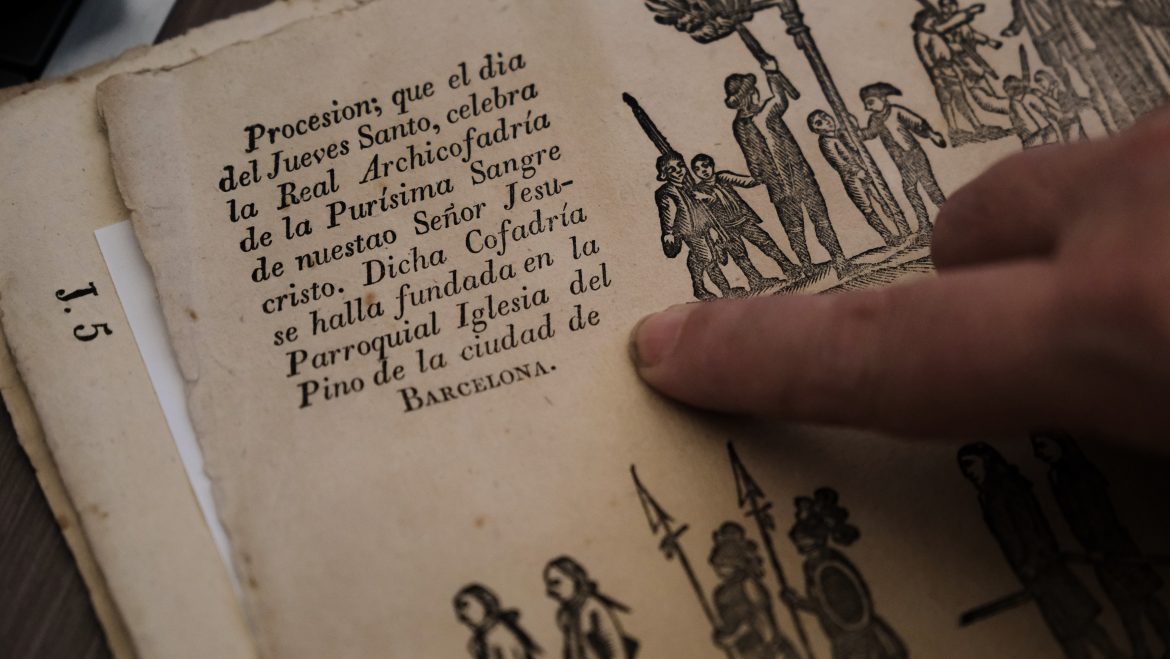 Procesion; que el dia
del Jueves Santo, celebra
la Real Archicofadría
de la Purísima Sangre
de nuestao Señor Jesu-
cristo. Dicha Cofadría
se halla fundada en la
Parroquial Iglesia del
Pino de la ciudad de
BARCELONA.
J. 5